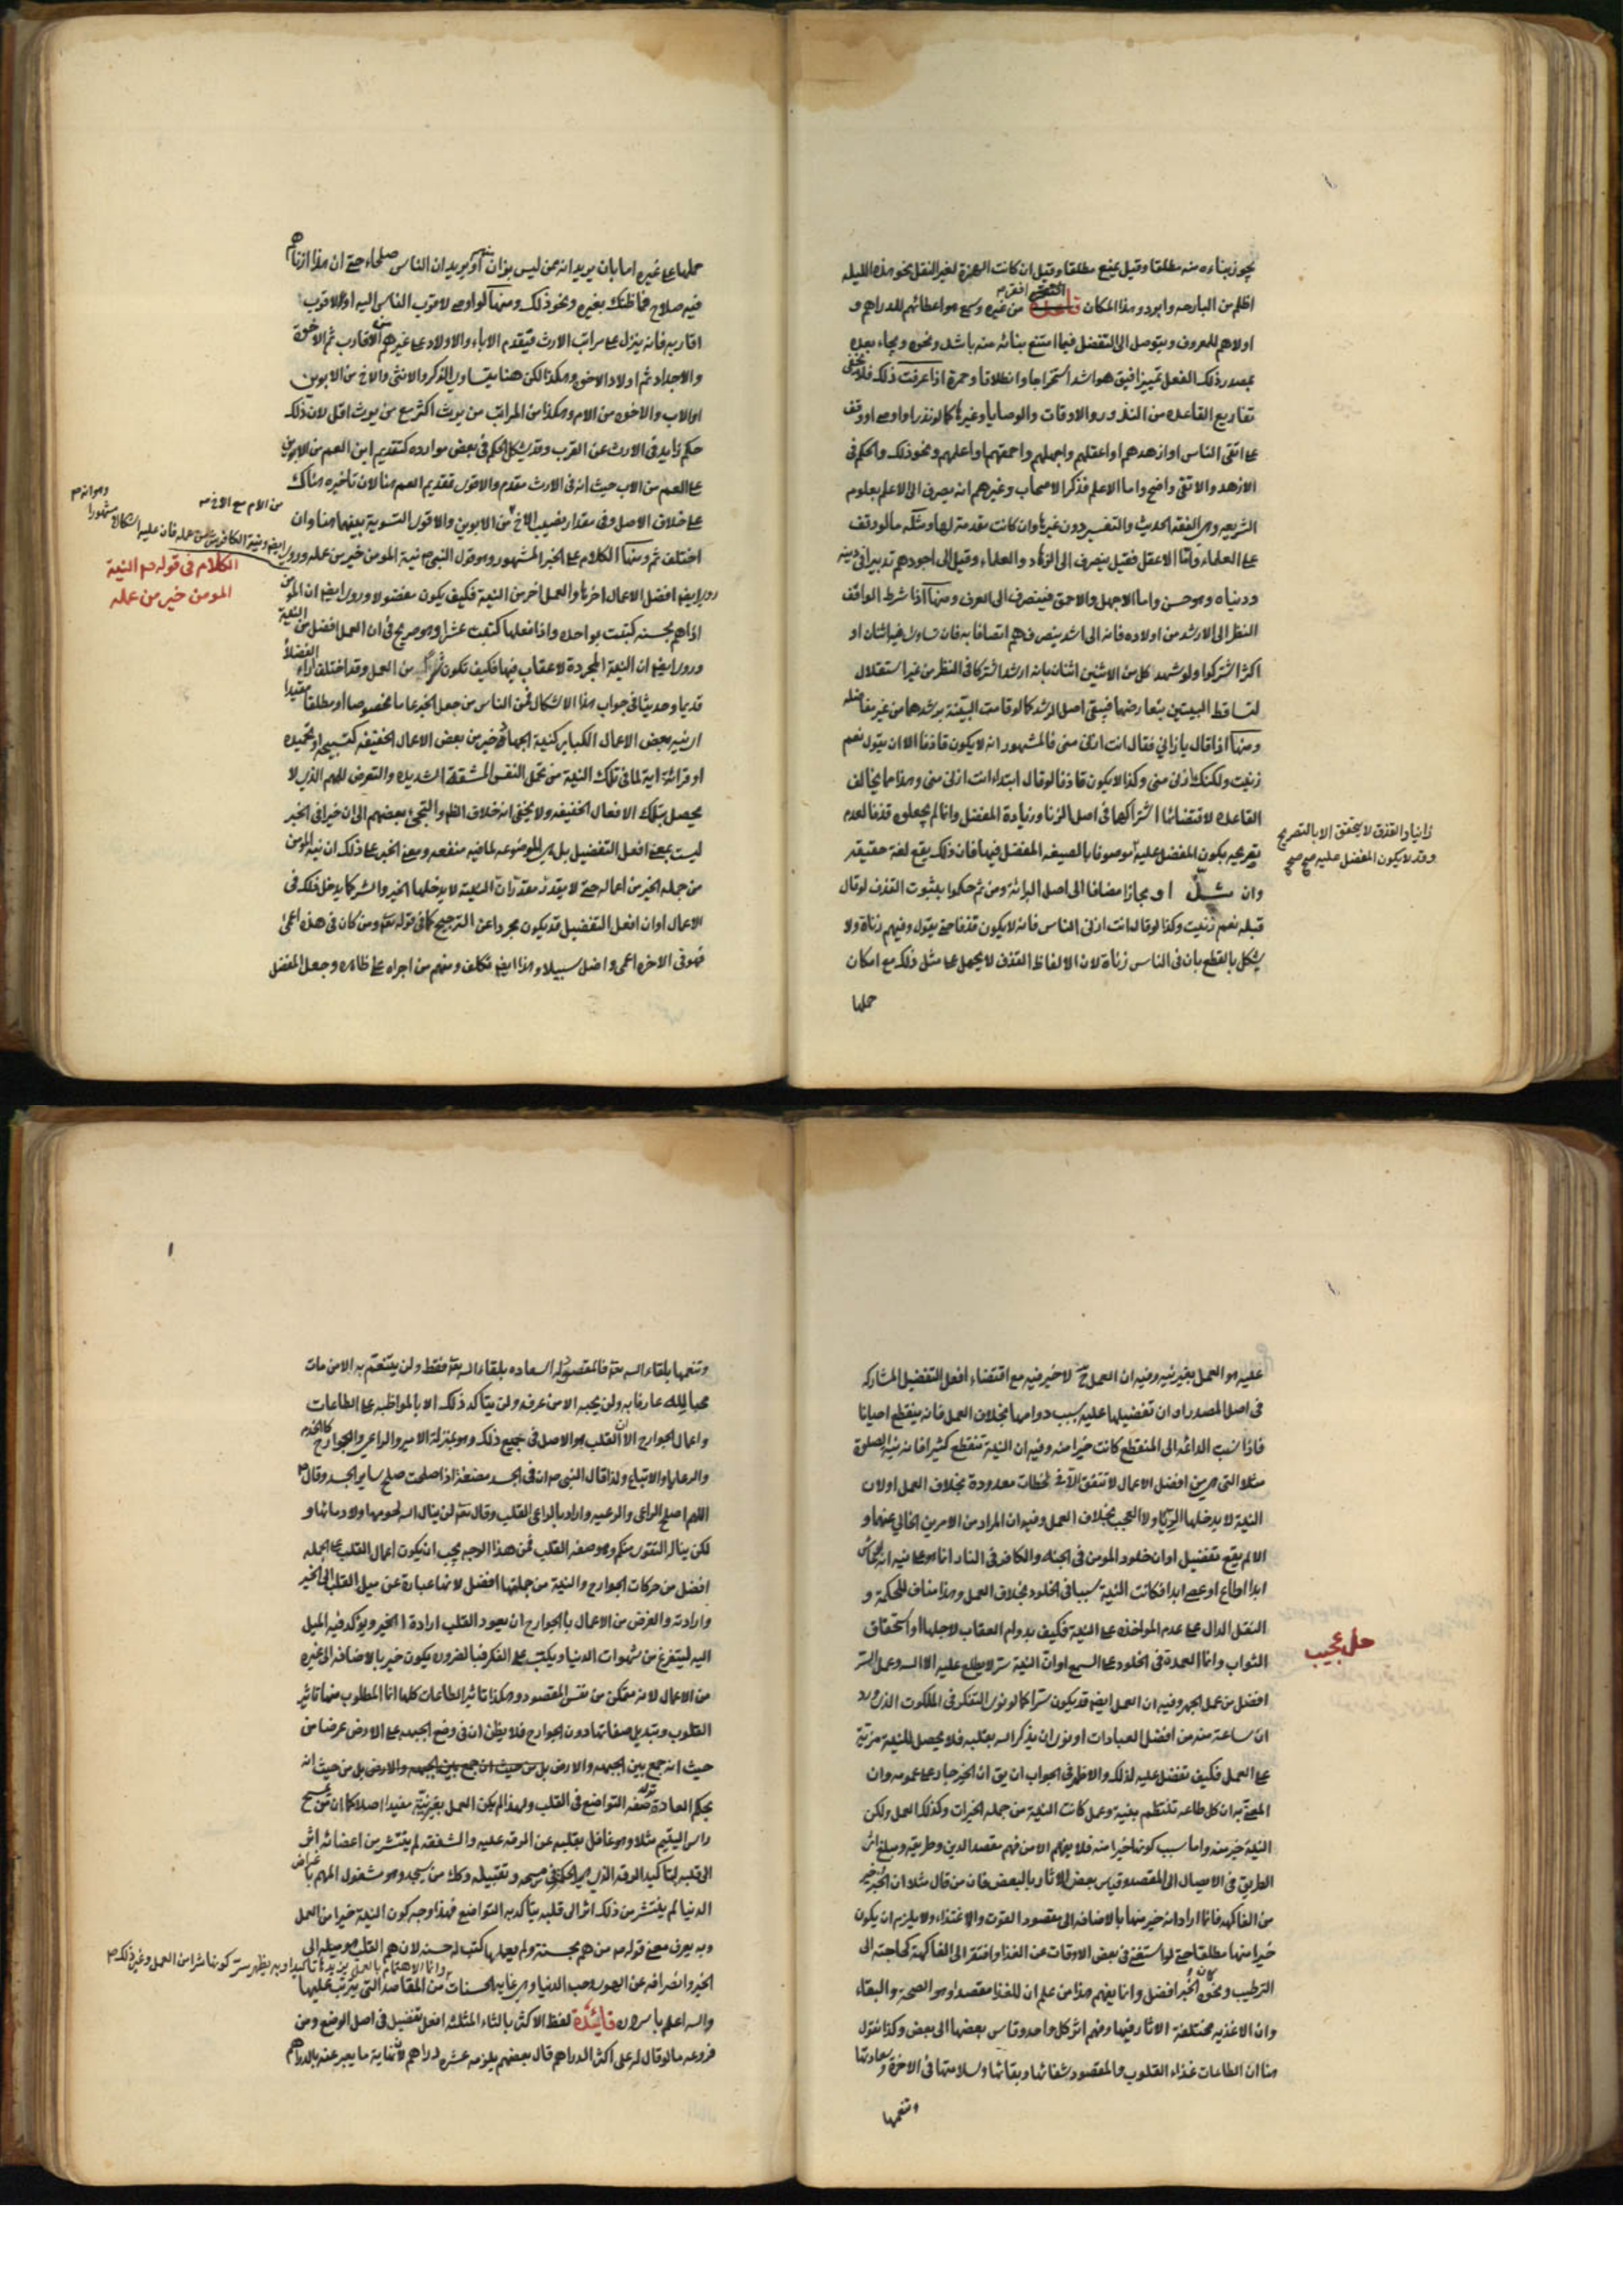 يجوز بناءه منه مطلقا وقيل يمنع مطلقا وقيل ان كانت الهمزة لغير النقل نحو هذه الليله
اظلم من البارحه وابرد وهذا المكان اقفر من غيره وسمع هو اعطاهم للدراهم و
اولاهم للمعروف ويتوصل الى التفضيل فيما امتنع بنائه منه باشد ونحوه ويجاء بعده
بمصدر ذلك الفعل تمييزا فيق هو اشد استخراجا وانطلاقا وحمرة اذا عرفت ذلك فلا يخفى
تفاريع القاعده من النذور والاوقات والوصايا وغيرها كما لو نذر او اوصى او وقف
على اتقى الناس او ازهدهم او اعقلهم واجهلهم واحمقهم او اعلمهم ونحو ذلك والحكم فى
الازهد والاتقى واضح واما الاعلم فذكر الاصحاب وغيرهم انه يصرف الى الاعلم بعلوم
الشريعه وهى الفقه الحديث والتفسير دون غيرها وان كانت مقدمة لها ومثله ما لو وقف
على العلماء واما الاعقل فقيل ينصرف الى الزهاد والعلماء وقيل الى اجودهم تدبيرا فى دينه
ودنياه وهو حسن واما الاجهل والاحمق فينصرف الى العرف ومنها اذا شرط الواقف
النظر الى الارشد من اولاده فانه الى اشد ينصرفهم اتصافا به فان تساوى فيه اثنان او
اكثر اشتركوا ولو شهد لكل من الاثنين اثنان بانه ارشد اشتركا فى النظر من غير استقلال
لتساقط البينتين بتعارضهما فيبقى اصل الرشد كما لو قامت البينة برشدهما من غير مفاضله
ومنها اذا قال يا زانى فقال انت ازنى منى فالمشهور انه لا يكون قاذفا الا ان يقول نعم
زنيت ولكنك ازنى منى وكذا لا يكون قاذفا لو قال ابتداء انت ازنى منى وهذا مما يخالف
القاعده لاقتضائها اشتراكهما فى اصل الزنا وزيادة المفضل وانما لم يجعلوه قذفا لعدم
زانيا والقذف لا يتحقق الا بالتصريح
وقد لا يكون المفضل عليه صح صح
تصريحه بكون المفضل عليه موصوفا بالصيغه المفضل فيها فان ذلك يقع لغة حقيقه
وان او مجازا مضافا الى اصل البرائة ومن ثم حكموا بثبوت القذف لو قال
قبله نعم زنيت وكذا لو قال انت ازنى الناس فانه لا يكون قذفا حتى يقول وفيهم زناة ولا
يشكل بالقطع بان فى الناس زناة لان الالفاظ القذف لا يحمل على مثل ذلك مع امكان
حملها
حملها على غيره اما بان يريد انه عن ليس بزان منهم او يريد ان الناس صلحاء حتى ان هذا ازناهم
فيه صلاح فما ظنك بغيره ونحو ذلك ومنها لو اوصى لاقرب الناس اليه او لاقرب
اقاربه فانه ينزل على مراتب الارث فيتقدم الاباء والاولاد على غيرهم من الاقارب ثم الاخوة
والاجداد ثم اولاد الاخوة وهكذا لكن هنا يتساوى الذكر والانثى والاخ من الابوين
او الاب والاخوه من الام وهكذا من المراتب من يرث اكثر مع من يرث اقل لان ذلك
حكم زايد فى الارث عن القرب وقد يشكل الحكم فى بعض موارده كتقديم ابن العم من الابوين
على العم من الاب حيث انه فى الارث مقدم والاقوى تقديم العم هنا لان تاخيره هناك
على خلاف الاصل وفى مقدار نصيب الاخ من الابوين والاقوى التسوية بينهما هنا وان
من الام مع الاخ صح
اختلف ثم ومنها الكلام على الخبر المشهور وهو قول النبى ص نية المومن خير من عمله وروى
ايضا ونية الكافر شر من عمله فان عليه اشكالا مشهورا
وهو انه ص
الكلام فى قوله ص النية
المومن خير من عمله
روى ايضا افضل الاعمال احزها والعمل احز من النية فكيف يكون مفضولا وروى ايضا ان المومن
اذا هم بحسنه كتبت بواحده واذا فعلها كتبت عشرا وهو صريح فى ان العمل افضل من النية
وروى ايضا ان النية المجردة لا عقاب فيها فكيف تكون شرا من العمل وقد اختلف اراء الفضلاء
قديما وحديثا فى جواب هذا الاشكال فمن الناس من جعل الخبر عاما مخصوصا او مطلقا مقيدا
اى نيه بعض الاعمال الكباير كنية الجهاد خير من بعض الاعمال الخفيفه كتسبيحه او تحميده
او قرائة اية لما فى تلك النية من تحمل النفس المشقة الشديده والتعرض للهم الذى لا
يحصل بتلك الافعال الخفيفه ولا يخفى انه خلاف الظاهر والتجئ بعضهم الى ان خيرا فى الخبر
ليست بمعنى افعل التفضيل بل هى الموضوعه لما فيه منفعه ومعنى الخبر على ذلك ان نية المومن
من جمله الخير من اعماله حتى لا يقدر مقدر ان النية لا يدخلها الخير والشر كما يدخل ذلك فى
الاعمال او ان افعل التفضيل قد يكون مجردا عن الترجيح كما فى قوله تعالى ومن كان فى هذه اعمى
فهو فى الاخره اعمى واضل سبيلا وهذا ايضا تكلف ومنهم من اجراه على ظاهره وجعل المفضل
عليه هو العمل بغير نيه وفيه ان العمل ح لا خير فيه مع اقتضاء افعل التفضيل المشاركه
فى اصل المصدر او ان تفضيلها عليه بسبب دوامها بخلاف العمل فانه ينقطع احيانا
فاذا نسب الدائمه الى المنقطع كانت خيرا منه وفيه ان النية تنقطع كثيرا فان نية الصلوة
مثلا التى هى من افضل الاعمال لا تتفق الا فى لحظات معدودة بخلاف العمل او لان
النية لا يدخلها الريا ولا العجب بخلاف العمل وفيه ان المراد من الامرين الخالى عنهما و
الا لم يقع تفضيل او ان خلود المومن فى الجنه والكافر فى النار انما هو على نيه انه لو عاش
ابدا اطاع او عصى ابدا فكانت النية سببا فى الخلود بخلاف العمل وهذا مناف للحكمة و
النقل الدال على عدم المواخذه على النية فكيف بدوام العقاب لاجلها او استحقاق
حل عجيب
الثواب وانما العمدة فى الخلود على السمع او ان النية سر لا يطلع عليه الا الله وعمل السر
افضل من عمل الجهر وفيه ان العمل ايضا قد يكون سرا كما لو نوى التفكر فى الملكوت الذى ورد
ان ساعة منه من افضل العبادات او نوى ان يذكر الله بقلبه فلا يحصل للنية مزية
على العمل فكيف تفضل عليه لذلك والاظهر فى الجواب ان يق ان الخبر جار على عمومه وان
المعنى به ان كل طاعه تنتظم بنية وعمل كانت النية من جمله الخيرات وكذلك العمل ولكن
النية خير منه واما سبب كونها خيرا منه فلا يفهم الا من فهم مقصد الدين وطريقه ومبلغ اثر
الطريق فى الايصال الى المقصد وقياس بعض الاثار بالبعض فان من قال مثلا ان الخبز خير
من الفاكهه فانما اراد انه خير منها بالاضافه الى مقصود القوت والاغتذاء ولا يلزم ان يكون
خيرا منها مطلقا حتى لو استغنى فى بعض الاوقات عن الغذا وافتقر الى الفاكهة كحاجته الى
الترطيب ونحوه كان الخبز افضل وانما يفهم هذا من علم ان للغذا مقصدا وهو الصحة والبقاء
وان الاغذيه مختلفة الاثار فيها وفهم اثر كل واحد وقاس بعضها الى بعض وكذا نقول
هنا ان الطاعات غذاء القلوب والمقصود شفائها وبقائها وسلامتها فى الاخرة وسعادتها
وتنعمها
وتنعمها بلقاء الله تعالى فالمقصود له السعاده بلقاء الله تعالى فقط ولن يتنعم به الا من مات
محبا لله عارفا به ولن يحبه الا من عرفه ولن يتاكد ذلك الا بالمواظبه على الطاعات
واعمال الجوارح الا ان القلب هو الاصل فى جميع ذلك وهو بمنزلة الامير والراعى والجوارح كالخدم
والرعايا والاتباع ولذا قال النبى ص ان فى الجسد مضغة اذا صلحت صلح ساير الجسد وقال ص
اللهم اصلح الراعى والرعيه واراد بالراعى القلب وقال تعالى لن ينال الله لحومها ولا دماءها و
لكن يناله التقوى منكم وهو صفه القلب فمن هذا الوجه يجب ان يكون اعمال القلب على الجمله
افضل من حركات الجوارح والنية من جملتها افضل لانها عبارة عن ميل القلب الى الخير
وارادته والغرض من الاعمال بالجوارح ان يعود القلب ارادة الخير ويؤكد فيه الميل
اليه ليتفرغ من شهوات الدنيا ويكتب على الفكر فبالضروره يكون خيرا بالاضافه الى غيره
من الاعمال لانه متمكن من نفس المقصود وهكذا تاثير الطاعات كلها انما المطلوب منها تاثير
القلوب وتبديل صفاتها دون الجوارح فلا يظن ان فى وضع الجبهه على الارض غرضا من
حيث انه جمع بين الجبهه والارض بل من حيث ان جمع بين الجبهه والارض بل من حيث انه
بحكم العادة يؤكد صفه التواضع فى القلب ولهذا لم يكن العمل بغير نية مفيدا اصلا كما ان من يمسح
راس اليتيم مثلا وهو غافل بقلبه عن الرقه عليه والشفقه لم ينتشر من اعضائه اثر
الى قلبه لتاكيد الرقه الذى هو الحكمة فى مسحه وتقبيله وكك من سجد وهو مشغول الهم باغراض
الدنيا لم ينتشر من ذلك اثر الى قلبه يتاكد به التواضع فهذا وجه كون النية خيرا من العمل
وبه يعرف معنى قوله ص من هم بحسنة ولم يعملها كتب له حسنه لان هم القلب هو ميله الى
الخير وانصرافه عن الهوى وحب الدنيا وهى غايه الحسنات من المقاصد التى يترتب عليها
وانما الاهتمام بالعمل يزيدها تاكيدا وبه يظهر سر كونها شرا من العمل وغير ذلك ص
والله اعلم باسراره فائدة لفظ الاكثر بالثاء المثلثه افعل تفضيل فى اصل الوضع ومن
فروعه ما لو قال له على اكثر الدراهم قال بعضهم يلزمه عشره دراهم لانه نهاية ما يعبر عنه بالدراهم